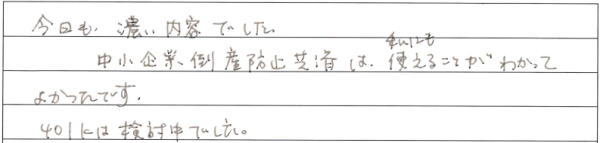 今日も、濃い内容でした
私にも
中小企業倒産防止共済は、使えることがわかって
よかったです。
401kは検討中でした。